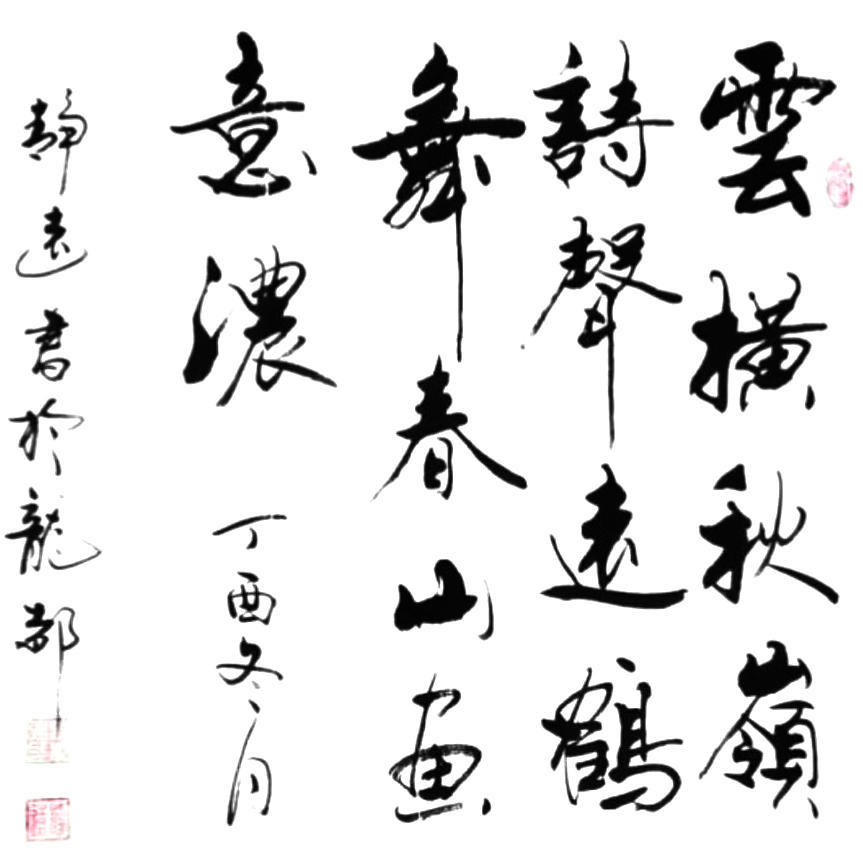 雲橫秋嶺
詩聲遠鶴
舞春山画
意濃 丁酉冬月
靜遠書於龍都